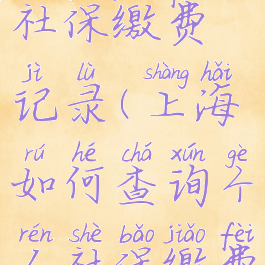 社保缴费
jì lù shàng hǎi
记录(上海
rú hé chá xún gè
如何查询个
rén shè bǎo jiǎo fèi
人社保缴费